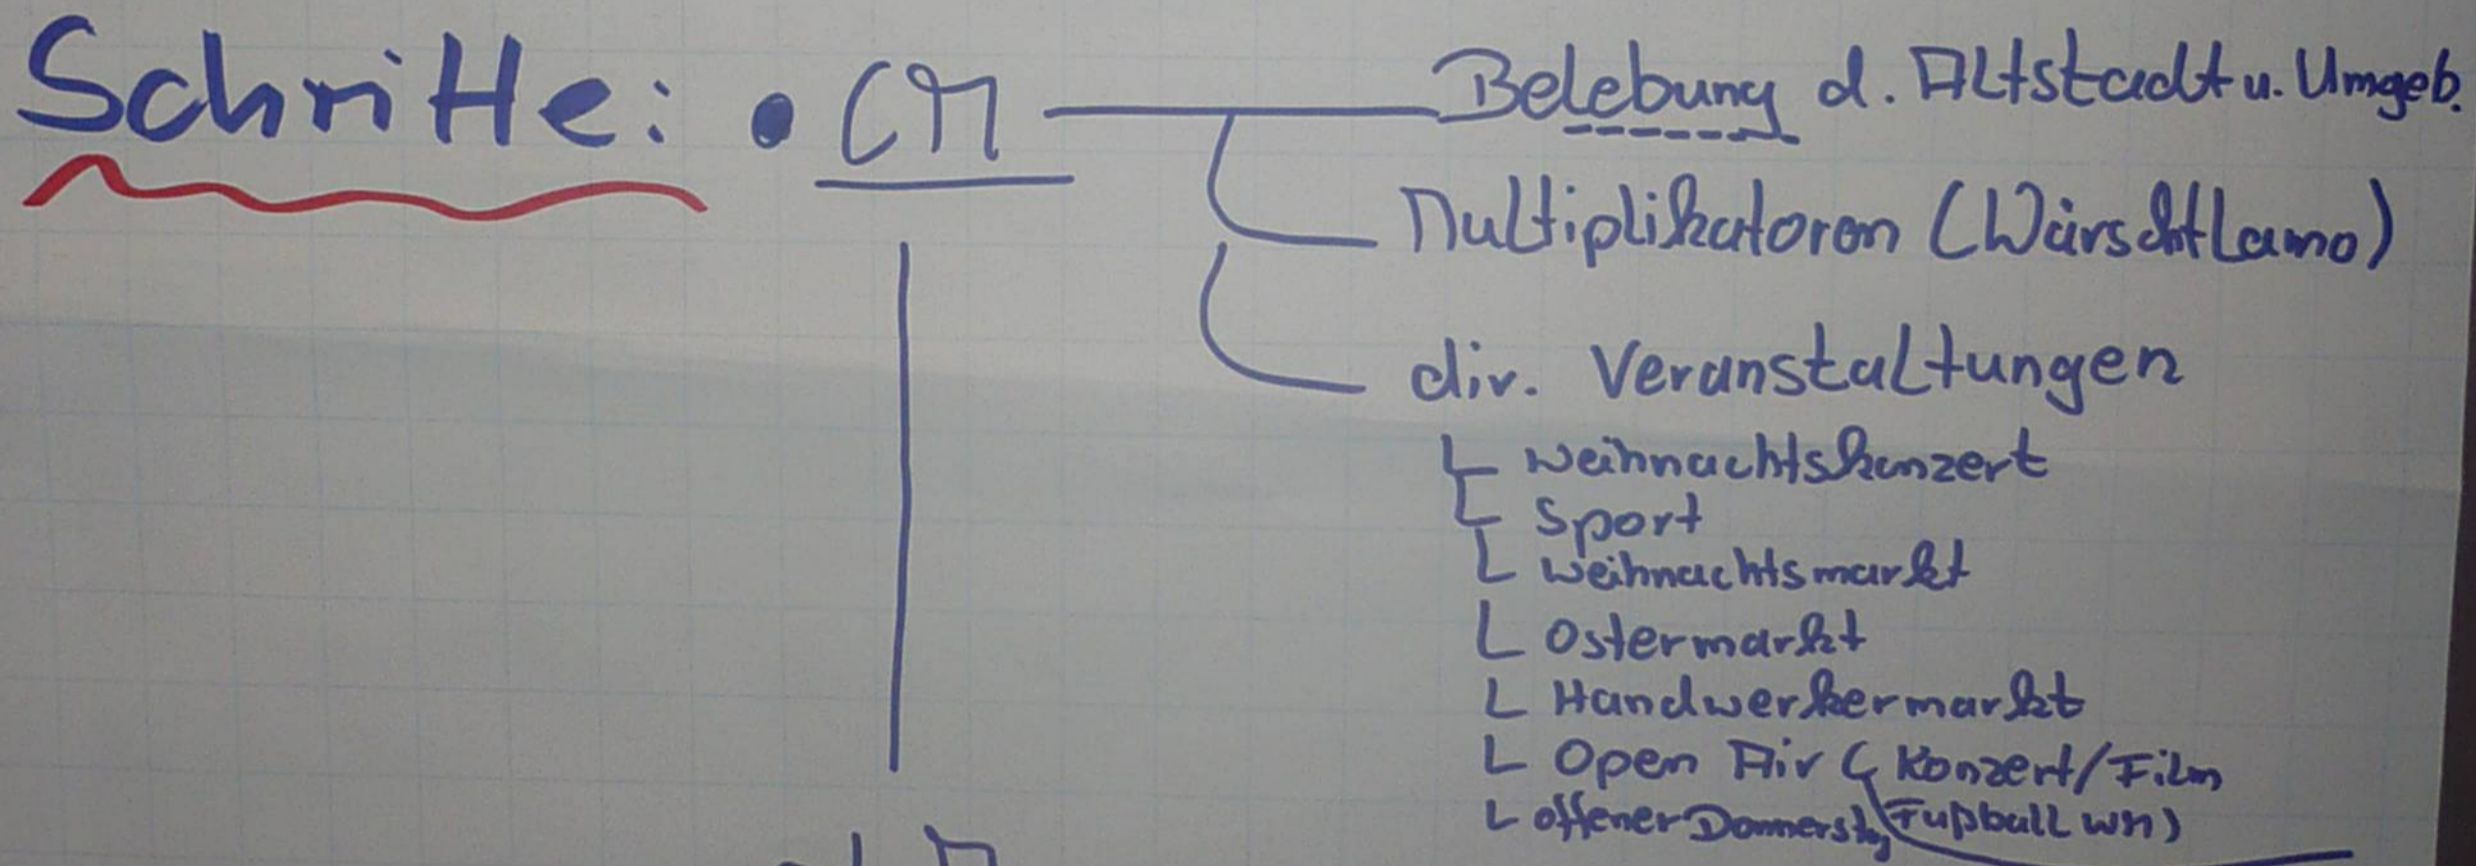 Schritte: • CM
Belebung d. Altstadt u. Umgeb.
Multiplikatoren (Würschtlamo)
div. Veranstaltungen
Weihnachtskonzert
Sport
Weihnachtsmarkt
Ostermarkt
Handwerkermarkt
Open Air (Konzert/Film
offener Donnerstag Fußball WM)